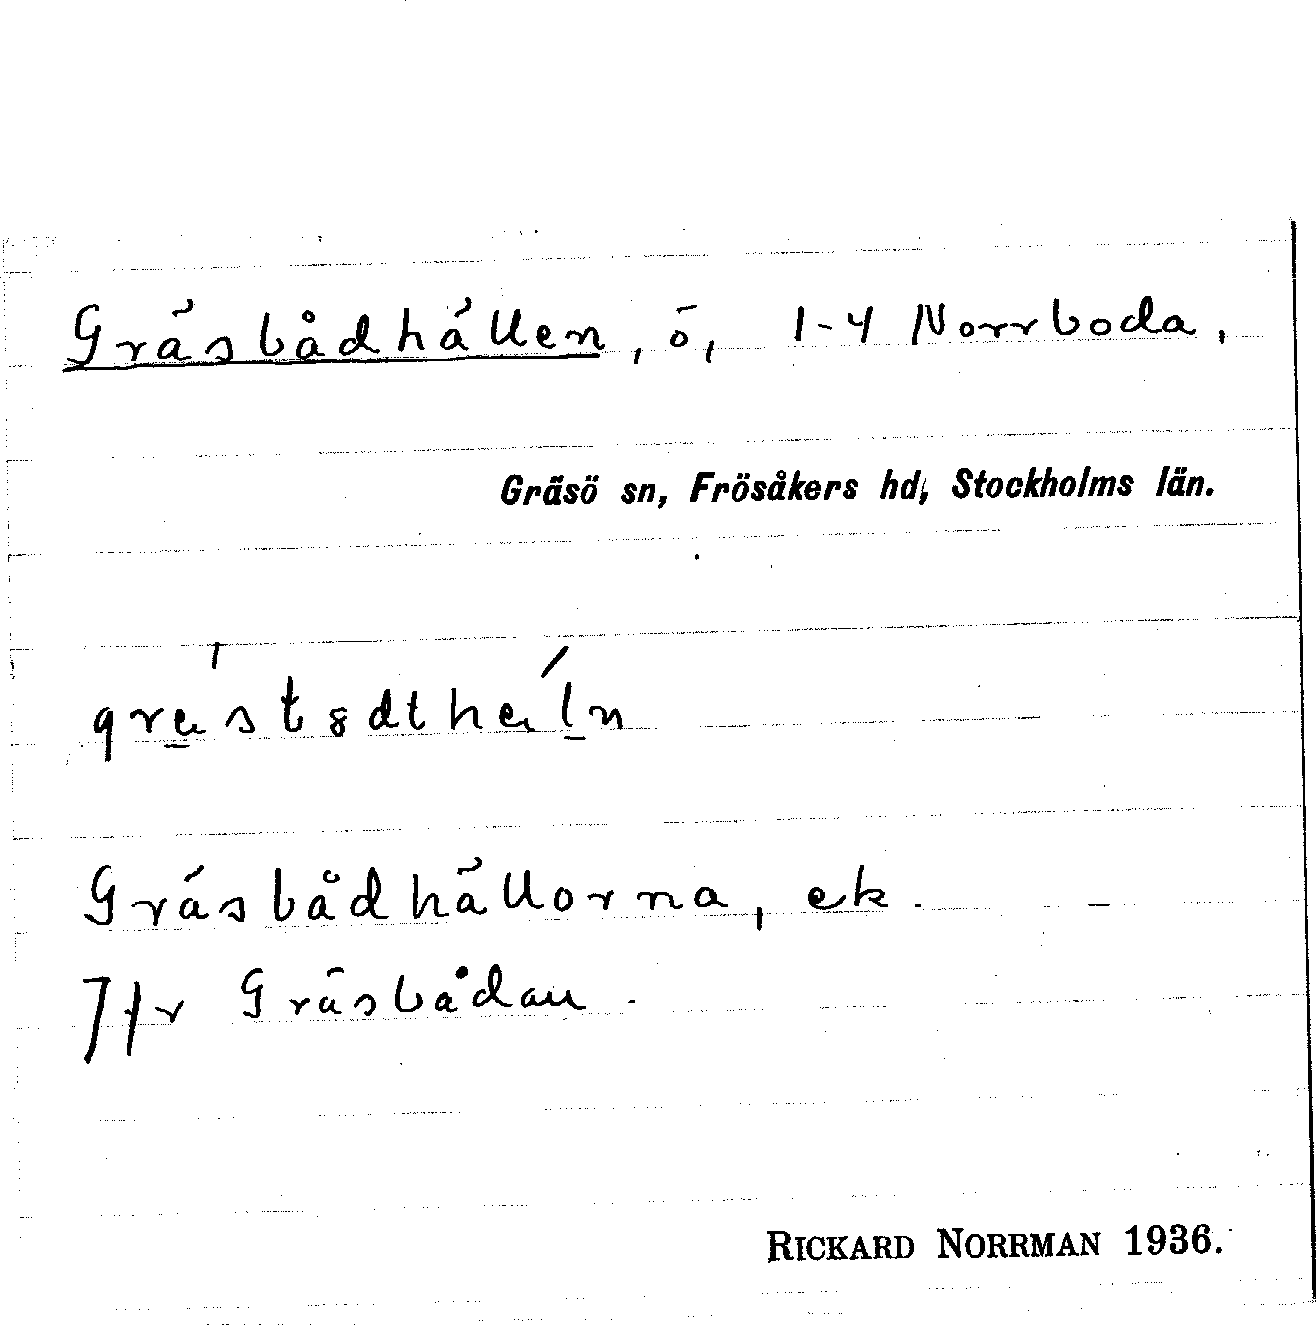 Gräsbådhällen, ö, 1-4 Norrboda,
Gräsö sn, Frösåkers hd, Stockholms län.
Gräsbådhällorna, ek.
Jfr Gräsbådan.
RICKARD NORRMAN 1936.